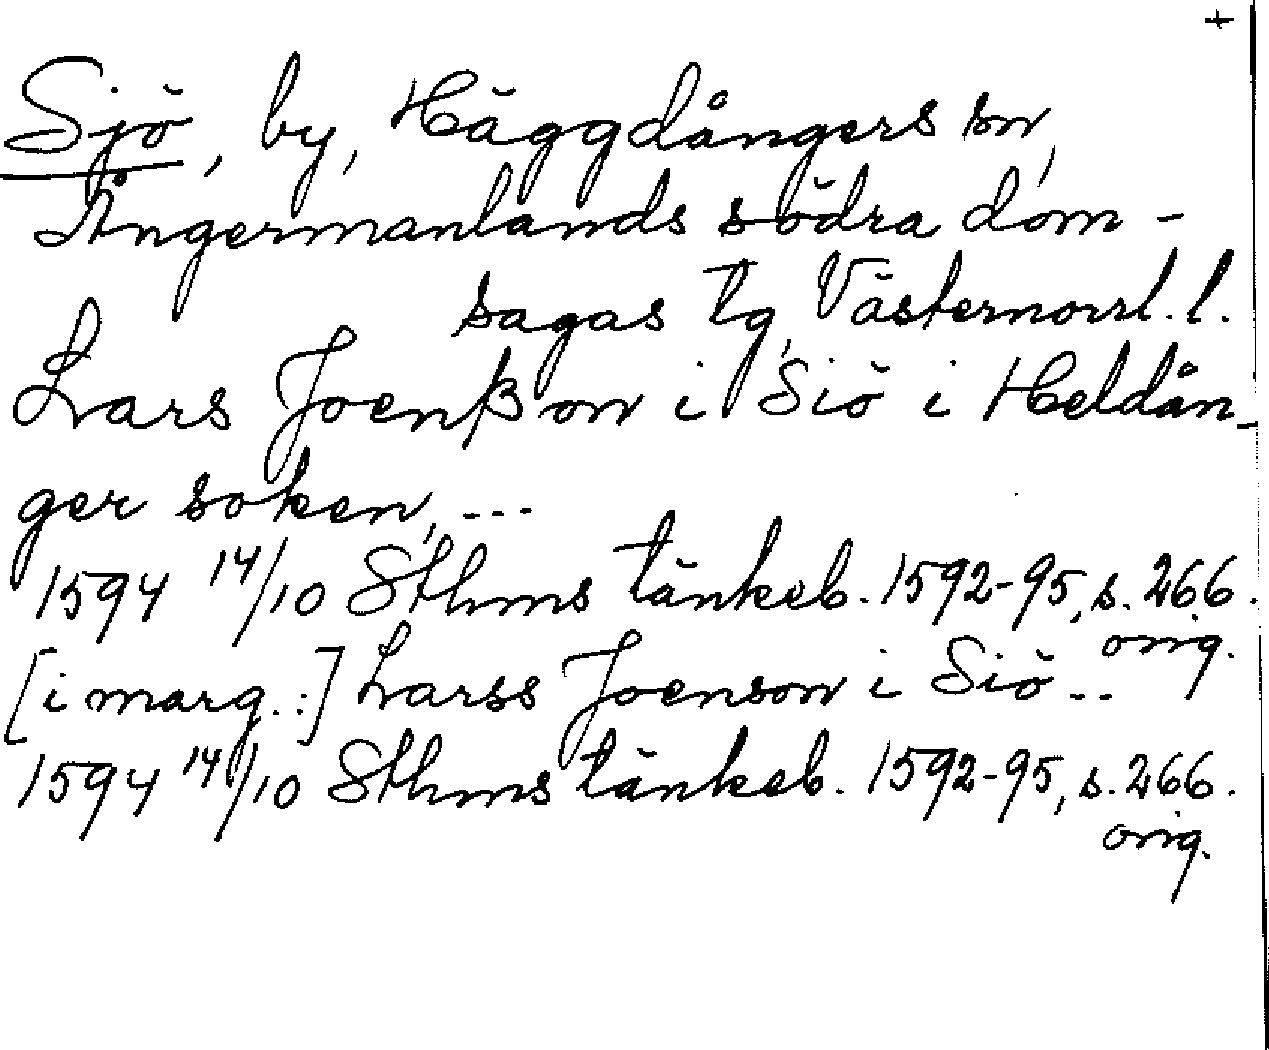 +
Sjö, by, Häggdångers sn,
Ångermanlands södra dom-
sagas tg, Västernorrl. l.
Lars Joenßon i Siö i Heldån-
ger soken, ---
1594 14/10 Sthms tänkeb. 1592-95, s. 266.
orig.
[i marg.:] Larss Joenson i Siö --
1594 14/10 Sthms tänkeb. 1592-95, s. 266.
orig.